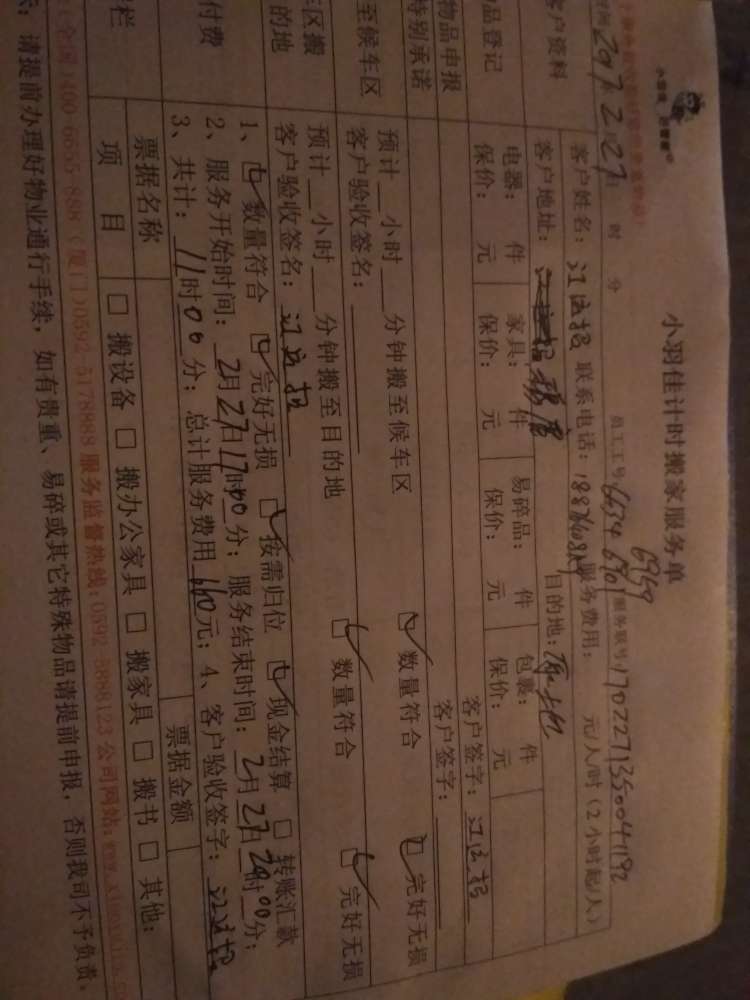 小羽佳计时搬家服务单
2017年2月27日 时 分 员工工号 6634 服务联号
6959
客户资料 客户姓名: 联系电话: 服务费用: 元/人/时(2小时起/人)
客户地址: 目的地:
品登记 电器: 件 家具: 件 易碎品: 件 包裹: 件
保价: 元 保价: 元 保价: 元 保价: 元
物品申报 客户签字:
特别承诺 客户签字:
至候车区 预计 小时 分钟搬至候车区 数量符合 完好无损
客户验收签名:
区搬 预计 小时 分钟搬至目的地 数量符合 完好无损
的地 客户验收签名:
付费 1、 数量符合 完好无损 按需归位 现金结算 □ 转账汇款
2、服务开始时间: 2月27日17时00分; 服务结束时间: 2月27日24时00分;
3、共计: 11时00分; 总计服务费用 元; 4、客户验收签字:
栏 票据名称 票据金额
项 目 □ 搬设备 □ 搬办公家具 □ 搬家具 □ 搬书 □ 其他:
(全国)400-6655-888 (厦门)0592-5178888 服务监督热线:0592-5888123 公司网站:
请提前办理好物业通行手续, 如有贵重、易碎或其它特殊物品请提前申报, 否则我司不予负责。